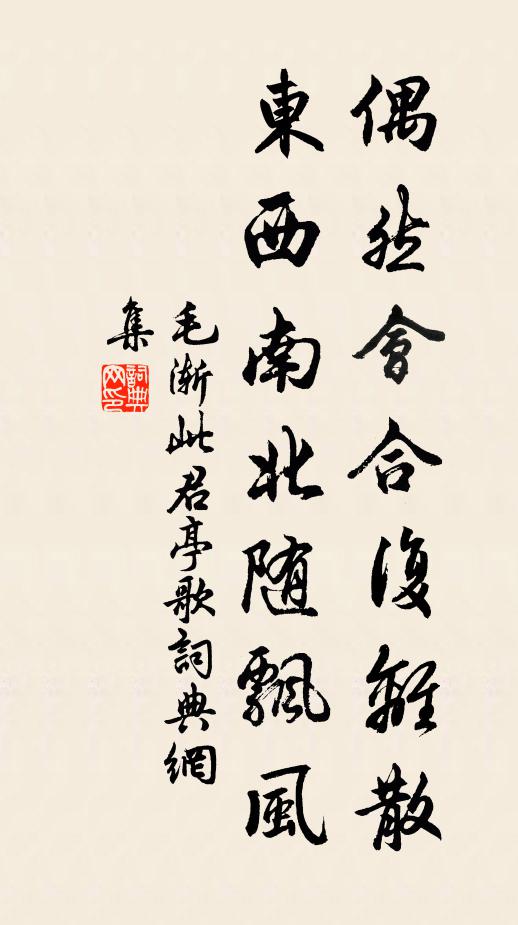 偶然會合復離散
東西南北随飄風
毛漸此君亭歌詞典網
集
詞典
网印